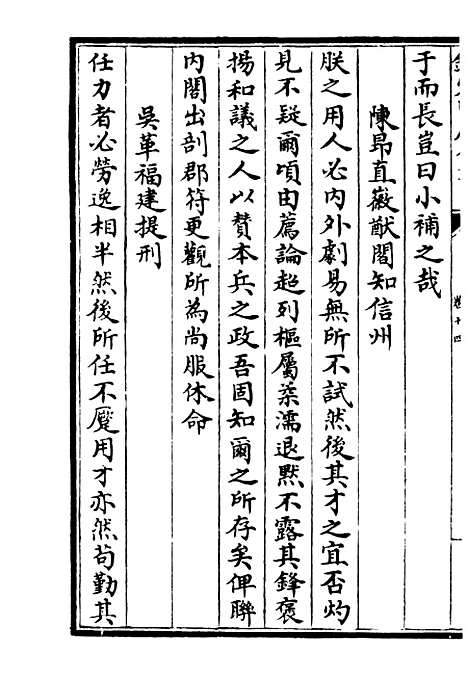 于而長豈曰小補之哉
陳昴直徽猷閣知信州
朕之用人必内外劇易無所不試然後其才之宜否灼
見不疑爾頃由薦論超列樞屬柒濡退黙不露其鋒褒
揚和議之人以賛本兵之政吾固知爾之所存矣俾聯
内閣出剖郡符更觀所為尚服休命
吳革福建提刑
任力者必勞逸相半然後所任不厴用才亦然茍勤其
卷十四